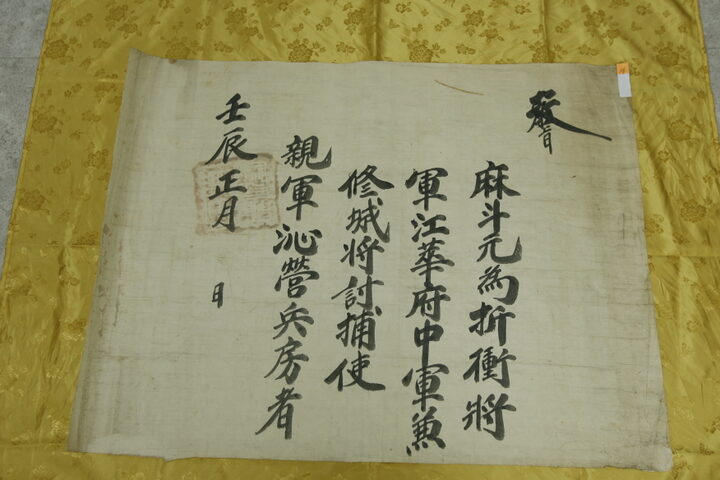 敎旨
麻斗元為折衝將
軍江華府中軍兼
修城將討捕使
親軍沁營兵房者
壬辰正月 日